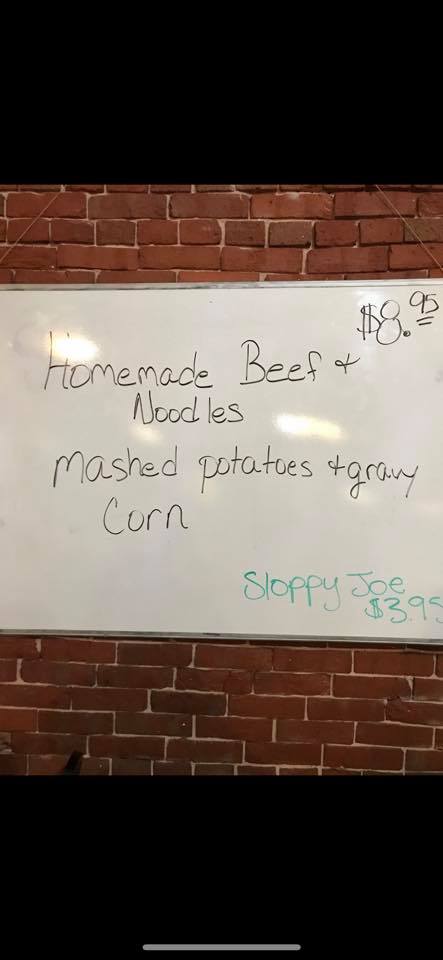 $8.95
Homemade Beef +
Noodles
mashed potatoes + gravy
Corn
Sloppy Joe
$3.95